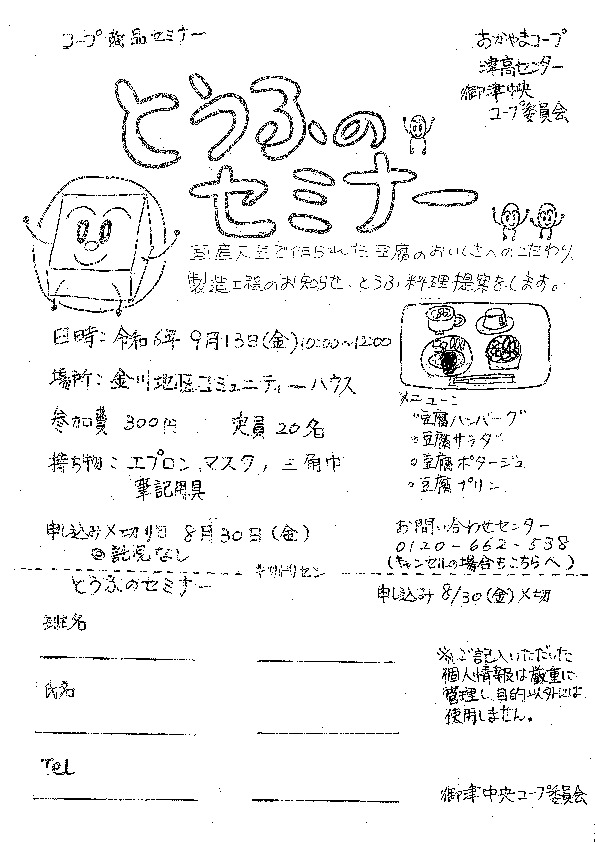 コープ商品セミナー
おかやまコープ
津高センター
御津中央
コープ委員会
とうふの
セミナー
国産大豆で作られた豆腐のおいしさへのこだわり、
製造工程のお知らせ、とうふ料理提案をします。
日時：令和6年9月13日(金)10:00~12:00
場所：金川地区コミュニティーハウス
参加費 300円 定員20名
持ち物：エプロン、マスク、三角巾
筆記用具
メニュー：
○豆腐ハンバーグ
○豆腐サラダ
○豆腐ポタージュ
○豆腐プリン
申し込み〆切り 8月30日(金)
託児なし
お問い合わせセンター
0120-662-538
(キャンセルの場合もこちらへ)
キリトリセン
とうふのセミナー
申し込み 8/30(金)〆切
班名
氏名
Tel
※ご記入いただいた
個人情報は厳重に
管理し、目的以外には
使用しません。
御津中央コープ委員会